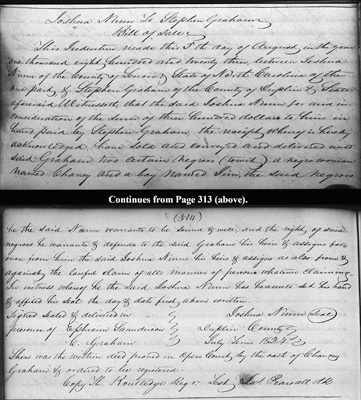 Joshua Nunn To Stephen Graham
Bill of Sale
This Indenture made this 5th day of August in the year
one thousand eight hundred and twenty three between Joshua
Nunn of the County of Lenoir & State of North Carolina of the
one part & Stephen Graham of the County of Duplin & State
aforesaid Witnesseth, that the said Joshua Nunn for and in
consideration of the sum of three hundred dollars to him in
hand paid by Stephen Graham, the receipt whereof is hereby
acknowledged have sold and conveyed and delivered unto
said Graham two certain negroes (towit) a negro woman
named Chaney and a boy named Jim the said negroes
Continues from Page 313 (above).
(314)
he the said Nunn warrants to be sound & well and the right of said
negroes he warrants & defends to the said Graham his heirs & assigns for
ever from him the said Joshua Nunn his heirs & assigns as also from &
against the lawful claim of all manner of persons whatever claiming
In witness whereof he the said Joshua Nunn has hereunto set his hand
& affixed his seal the day & date first above written
Signed sealed & delivered in Joshua Nunn Seal
presence of Ephraim Saunderson Duplin County
C. Graham July Term 1824
Then was the within deed proved in Open Court by the oath of Chauncy
Graham & ordered to be registered.
Copy Th. Routledge Regr. Test Jas Pearsall Clk